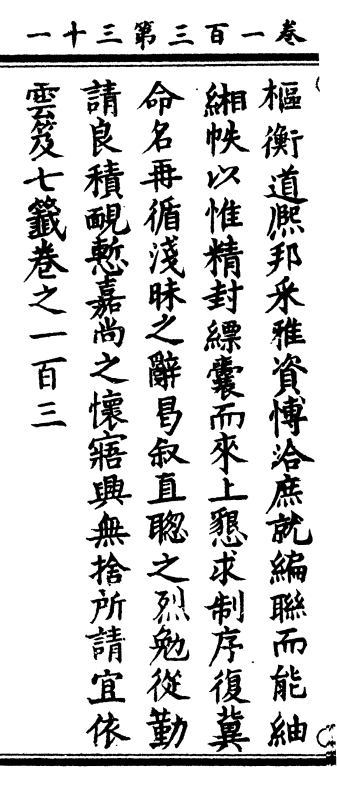 卷一百三第三十一
樞衡道熈邦采雅資愽洽庶就編聯而能紬
緗帙以惟精封縹囊而來上懇求制序復冀
命名再循淺昧之辭曷叙直聦之烈勉從勤
請良積靦慙嘉尚之懷寤興無捨所請宜依
雲笈七籤卷之一百三